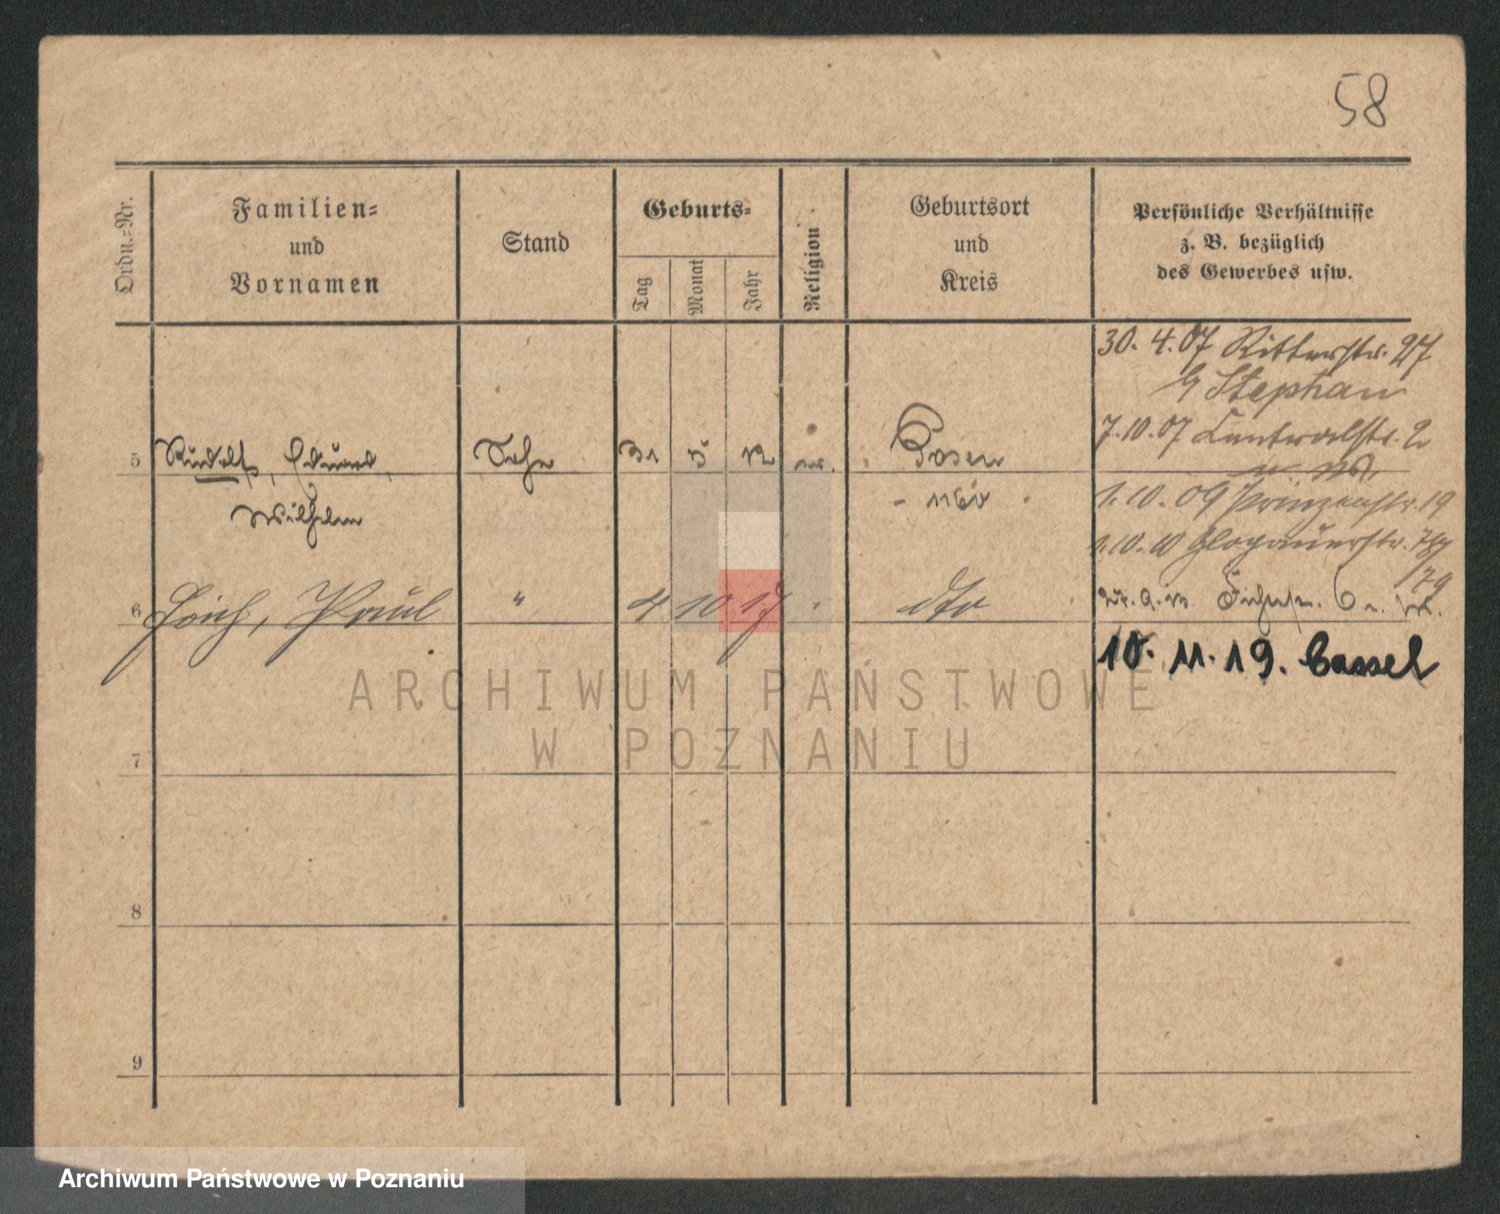 58
Ordn.-Nr.
Familien-
und
Vornamen
Stand
Geburts-
Tag
Monat
Jahr
Religion
Geburtsort
und
Kreis
Persönliche Verhältnisse
z. B. bezüglich
des Gewerbes usw.
30. 4. 07 Ritterstr. 27
Stephan
7. 10. 07 2
5 Rudolf, Eduard, Sohn 31 5 12 ev. Posen
Wilhelm
1. 10. 09 Prinzenstr. 19
1. 10. 10 Glogauerstr.
79
6 Erich, Paul " 4 10 17 " dto
6
10. 11. 19. Cassel
ARCHIWUM PAŃSTWOWE
W POZNANIU
7
8
9
Archiwum Państwowe w Poznaniu